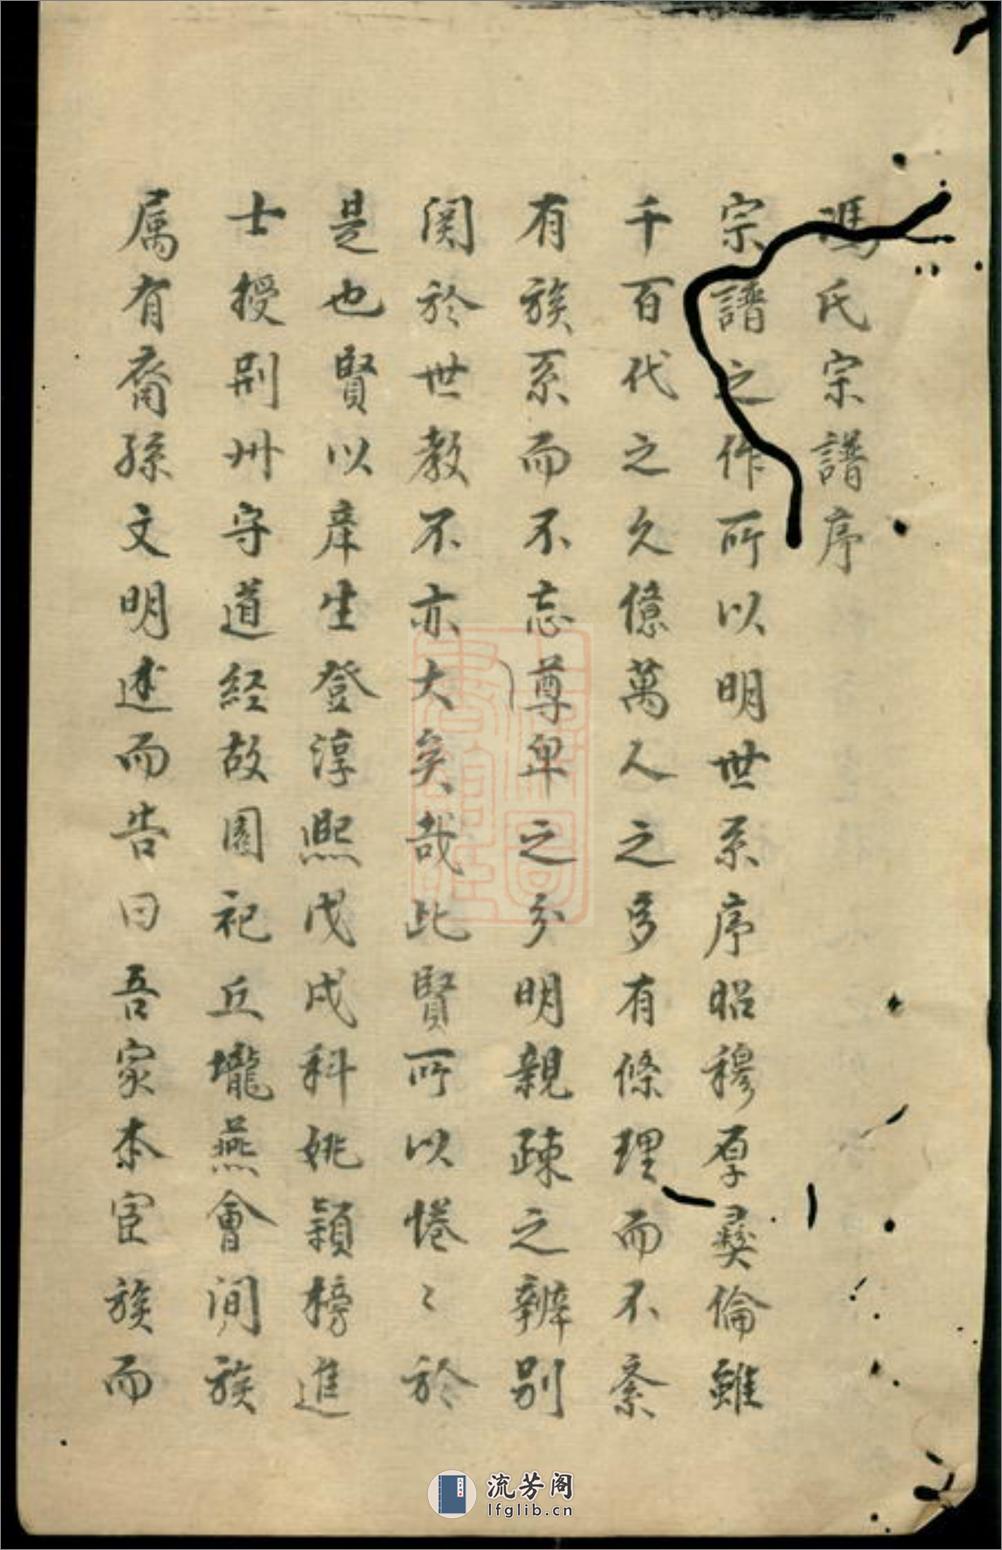 馮氏宗譜序
宗譜之作所以明世系序昭穆厚彝倫雖
千百代之久億萬人之多有條理而不紊
有族系而不忘尊卑之分明親疎之辨別
関於世教不亦大矣哉此賢所以惓〻於
是也賢以産生登淳熙戊戌科姚頴榜進
士授荆州守道经故園祀丘壠燕會间族
属有裔孫文明述而告曰吾家本宦族而
流芳阁
lfglib.cn